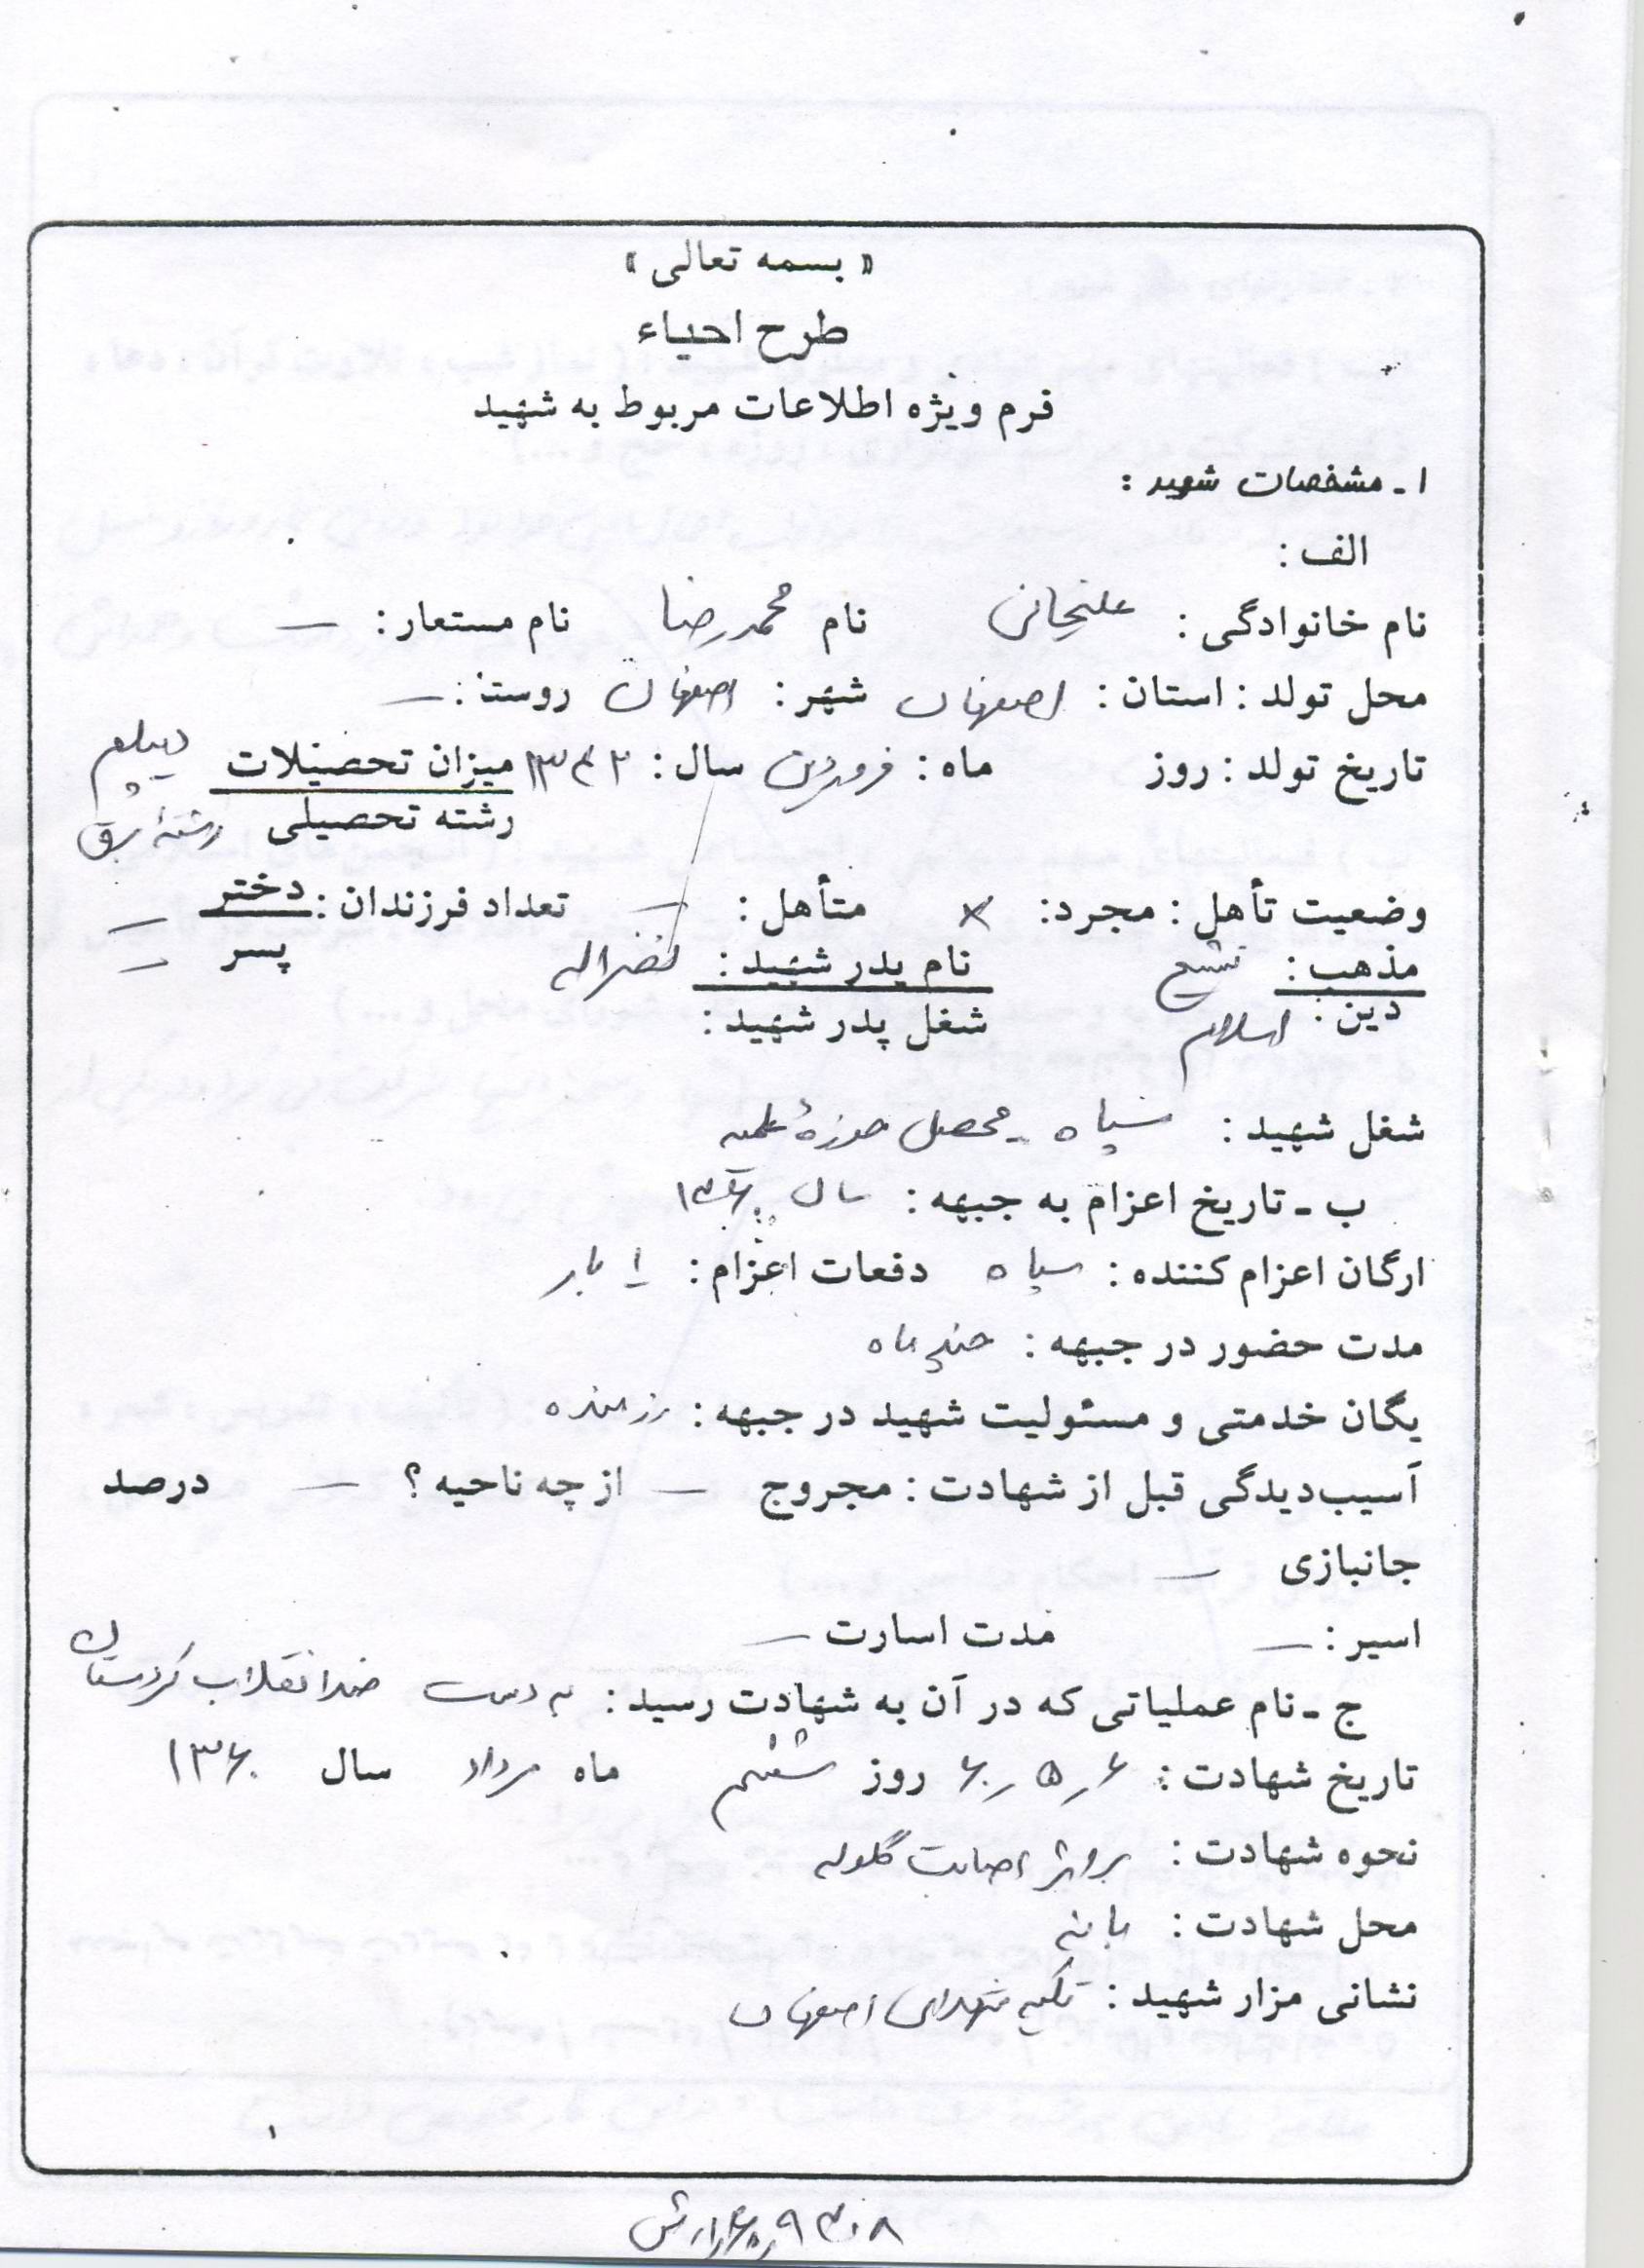 « بسمه تعالی »
طرح احیاء
فرم ویژه اطلاعات مربوط به شهید
۱ـ مشخصات شهید :
الف :
نام خانوادگی : علیخانی نام محمدرضا نام مستعار : —
محل تولد : استان : اصفهان شهر : اصفهان روستا : —
تاریخ تولد : روز ماه : فروردین سال : ۱۳۴۲ میزان تحصیلات دیپلم
رشته تحصیلی رشته برق
وضعیت تأهل : مجرد : × متأهل : — تعداد فرزندان : دختر —
مذهب : تشیع نام پدر شهید : فضل‌اله پسر —
دین : اسلام شغل پدر شهید :
شغل شهید : سپاه - محصل حوزهٔ علمیه
ب ـ تاریخ اعزام به جبهه : سال ۱۳۶۰
ارگان اعزام کننده : سپاه دفعات اعزام : ۱ بار
مدت حضور در جبهه : چند ماه
یگان خدمتی و مسئولیت شهید در جبهه : رزمنده
آسیب‌دیدگی قبل از شهادت : مجروح — از چه ناحیه ؟ — درصد
جانبازی —
اسیر : — مدت اسارت —
ج ـ نام عملیاتی که در آن به شهادت رسید : به دست ضدانقلاب کردستان
تاریخ شهادت : ۶ر۵ر۶۰ روز ششم ماه مرداد سال ۱۳۶۰
نحوه شهادت : بر اثر اصابت گلوله
محل شهادت : بانه
نشانی مزار شهید : تکیه شهدای اصفهان